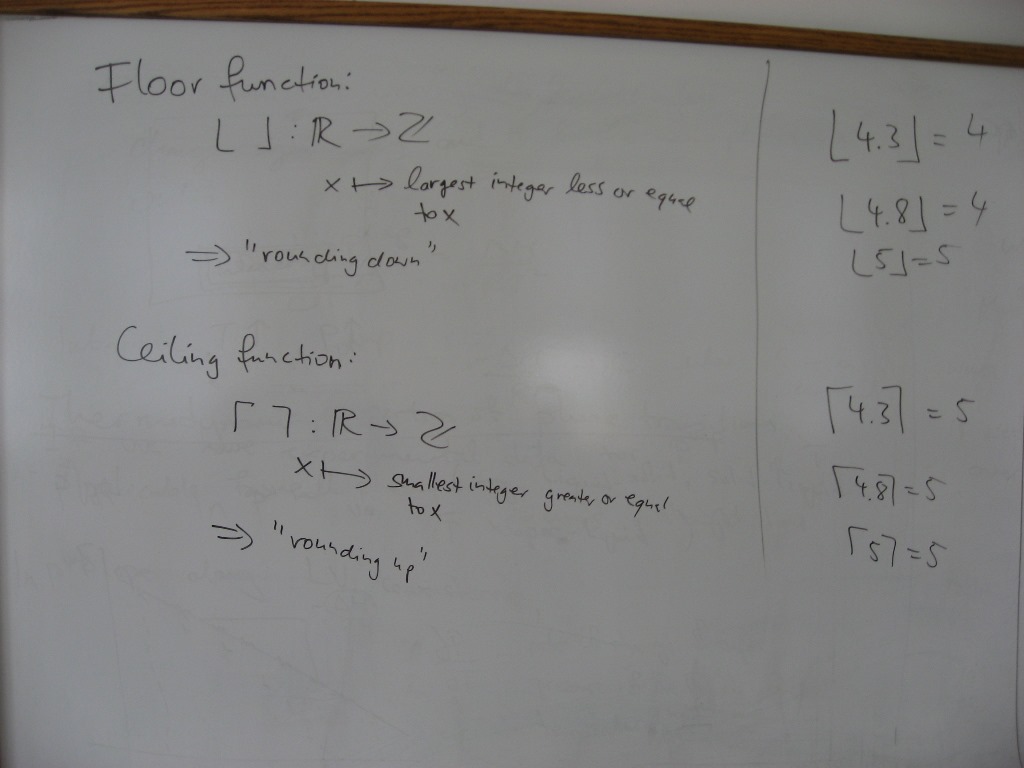 Floor function:
⌊ ⌋ : ℝ → ℤ
x ↦ largest integer less or equal
to x
⇒ "rounding down"
Ceiling function:
⌈ ⌉ : ℝ → ℤ
x ↦ smallest integer greater or equal
to x
⇒ "rounding up"
⌊4.3⌋ = 4
⌊4.8⌋ = 4
⌊5⌋ = 5
⌈4.3⌉ = 5
⌈4.8⌉ = 5
⌈5⌉ = 5